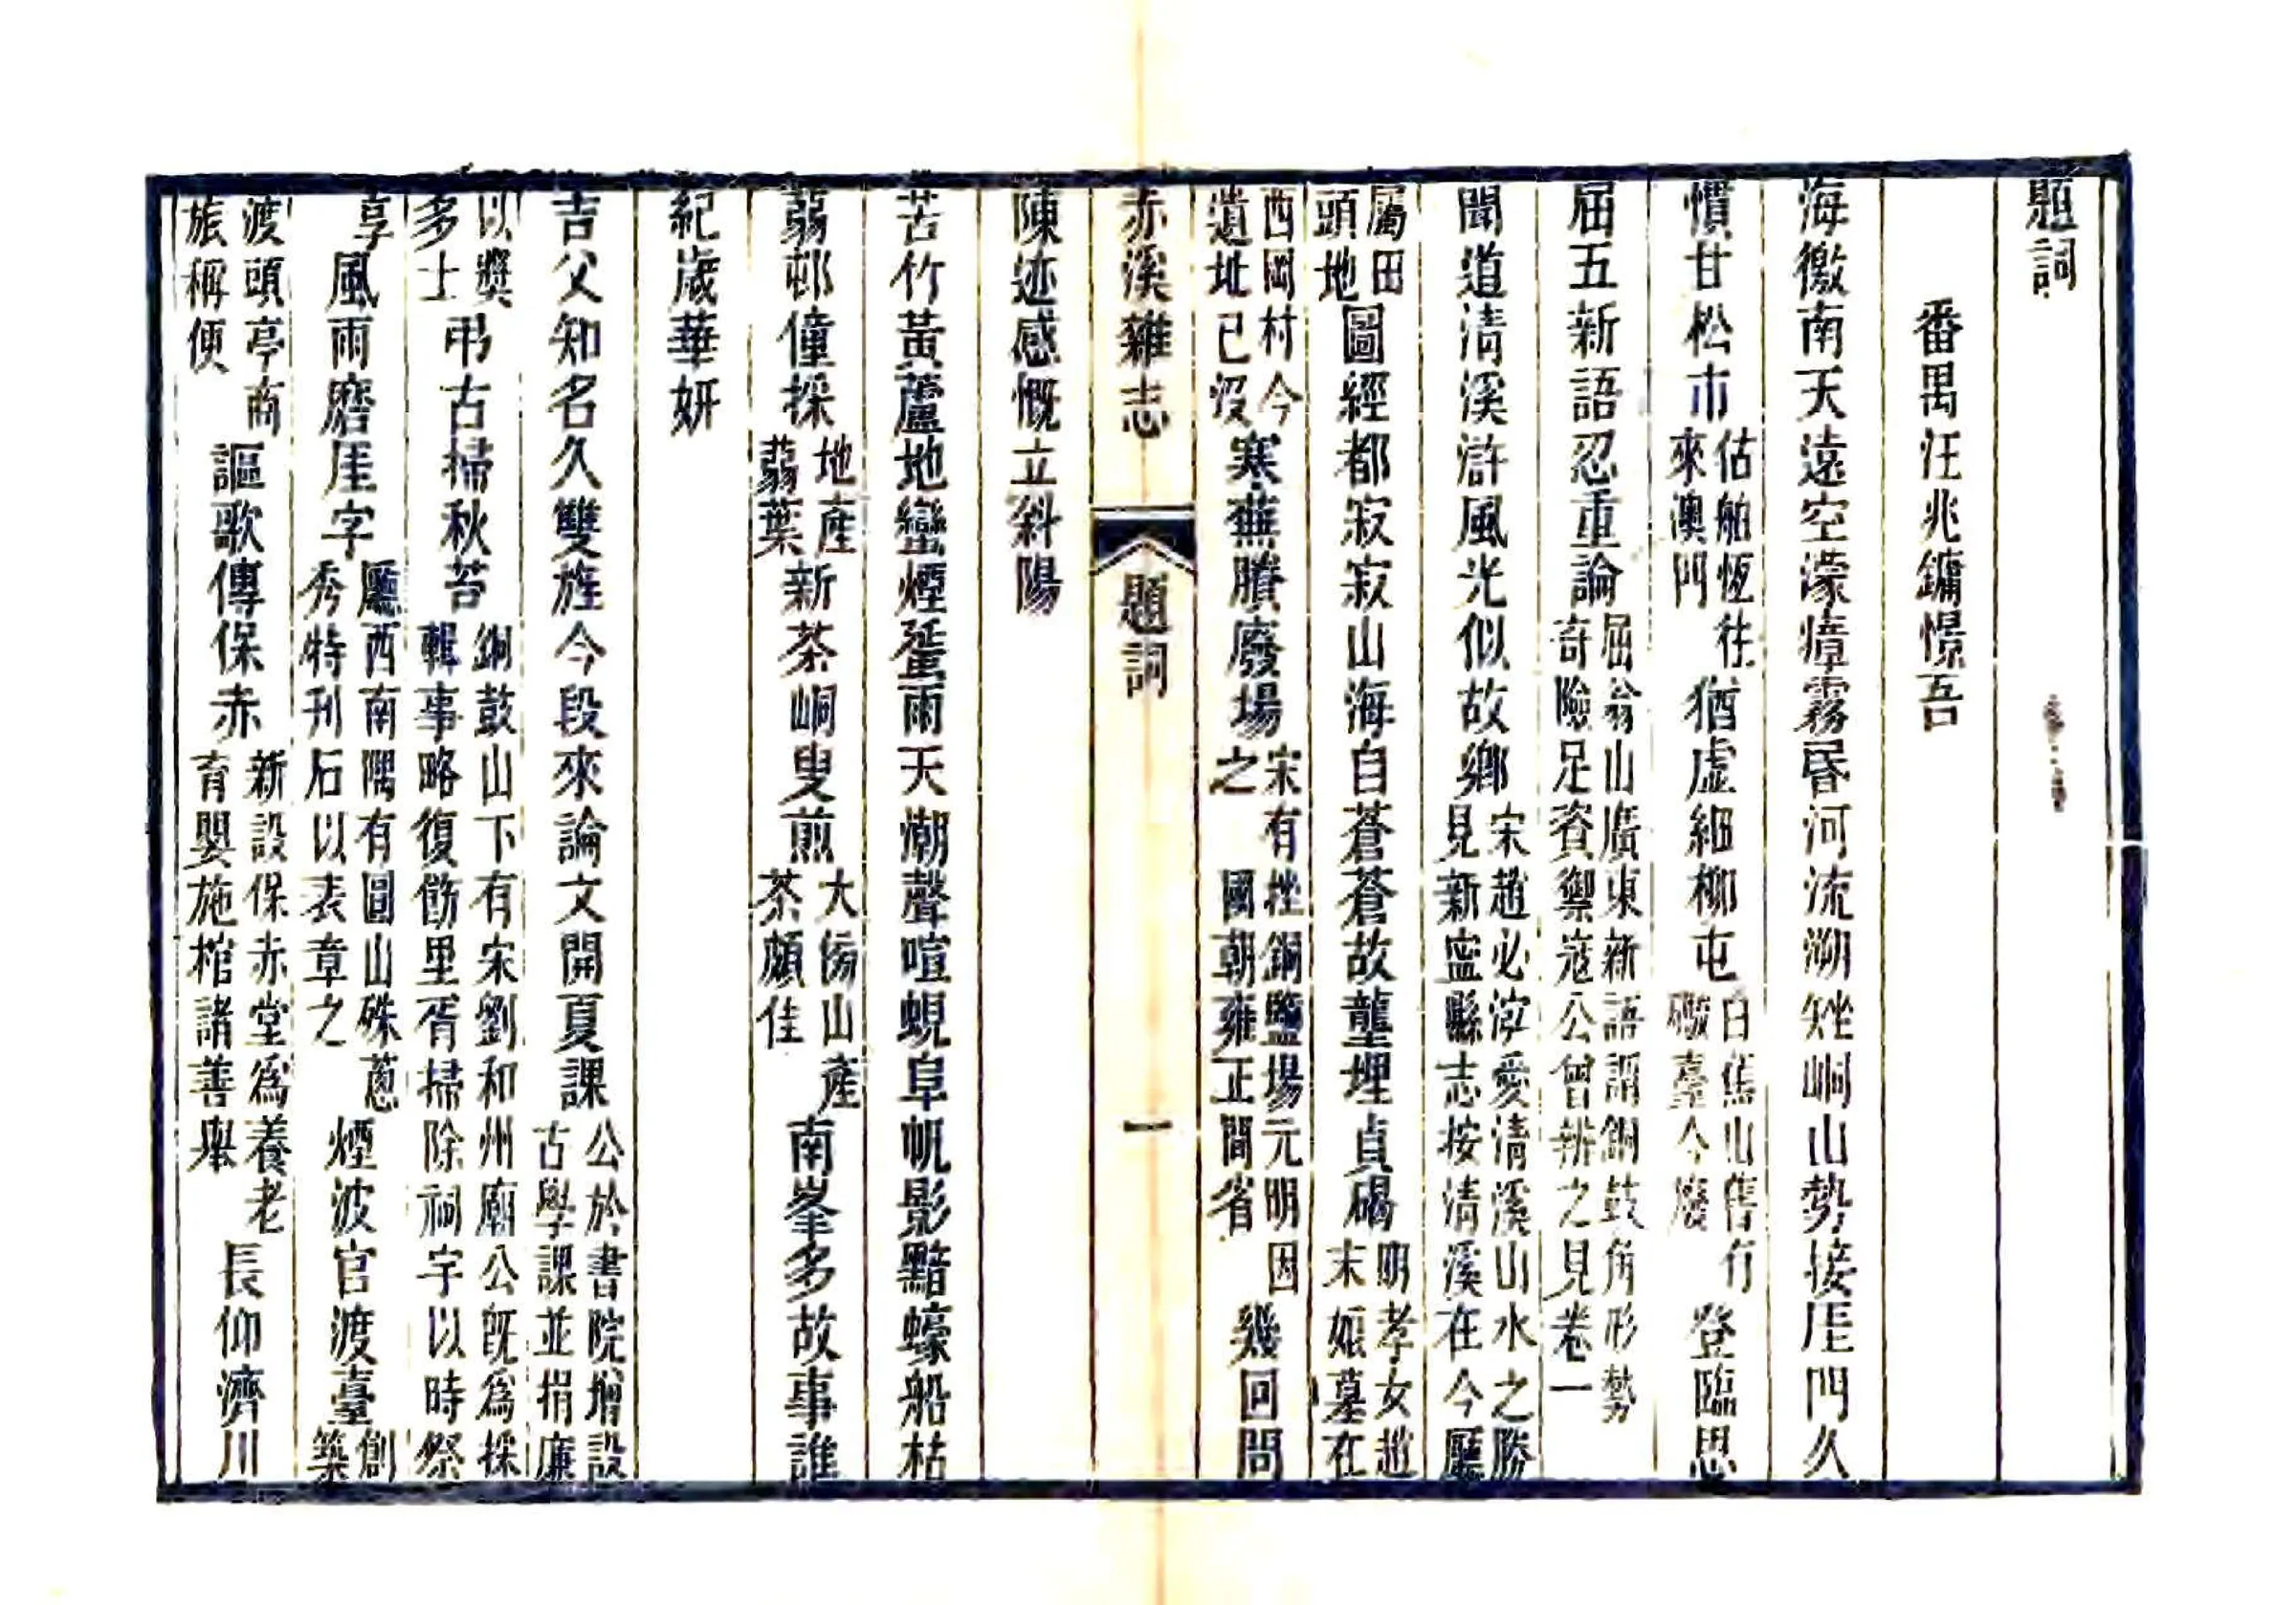 題詞
番禺汪兆鏞憬吾
海徼南天遠空濛瘴霧昏河流溯矬峒山勢接厓門久
慣甘松市估舶恆往來澳門猶虛細柳屯白蕉山舊有礮臺今廢登臨思
屈五新語忍重論屈翁山廣東新語謂銅鼓角形勢奇險足資禦寇公曾辨之見卷一
聞道清溪滸風光似故鄉宋趙必愛清溪山水之勝見新寧縣志按清溪在今廳
屬田頭地圖經都寂寂山海自蒼蒼故壟埋貞碣明孝女趙末娘墓在
西岡村今遺址已沒寒蕪賸廢場宋有矬銅鹽場元明因之國朝雍正間省幾回問
赤溪雜志 題詞 一
陳迹感慨立斜陽
苦竹黃蘆地蠻煙蜑雨天潮聲喧蜆阜帆影黯蠔船枯
蒻邨僮採地產蒻葉新茶峒叟煎大傍山產茶頗佳南峯多故事誰
紀歲華妍
吉父知名久雙旌今段來論文開夏課公於書院增設古學課並捐廉
以獎多士弔古掃秋苔銅鼓山下有宋劉和州廟公旣爲採輯事略復飭里胥掃除祠宇以時祭
享風雨磨厓字廳西南隅有圓山硃蔥秀特刊石以表章之煙波官渡臺創築
渡頭亭商旅稱便謳歌傳保赤新設保赤堂爲養老育嬰施棺諸善舉長仰濟川